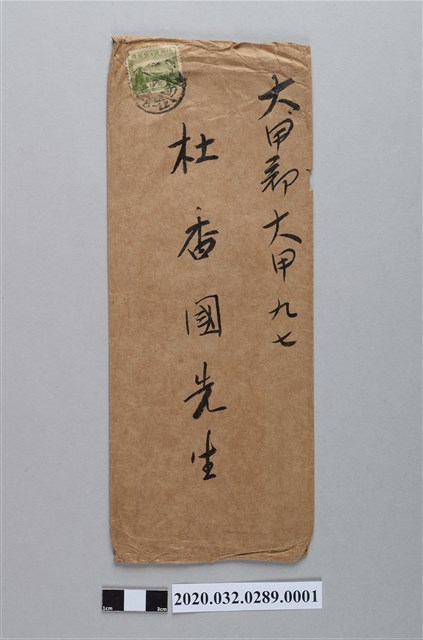 大甲郡大甲九七
杜香國先生
1cm
3cm
2020.032.0289.0001